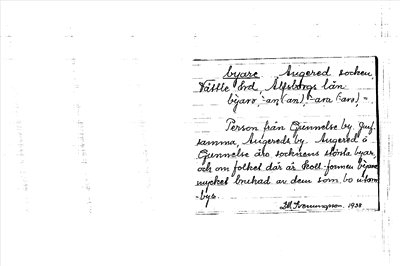 byare Angered socken,
Vättle hrd, Älfsborgs län
byarə, -an (an), -ara (arə), -
Person från Gunnelse by. Jnf.
samma, Angereds by. Angered o
Gunnelse äro socknens största byar,
och om folket där är koll. formen byare
mycket brukad av dem som bo utom
bys.
1938